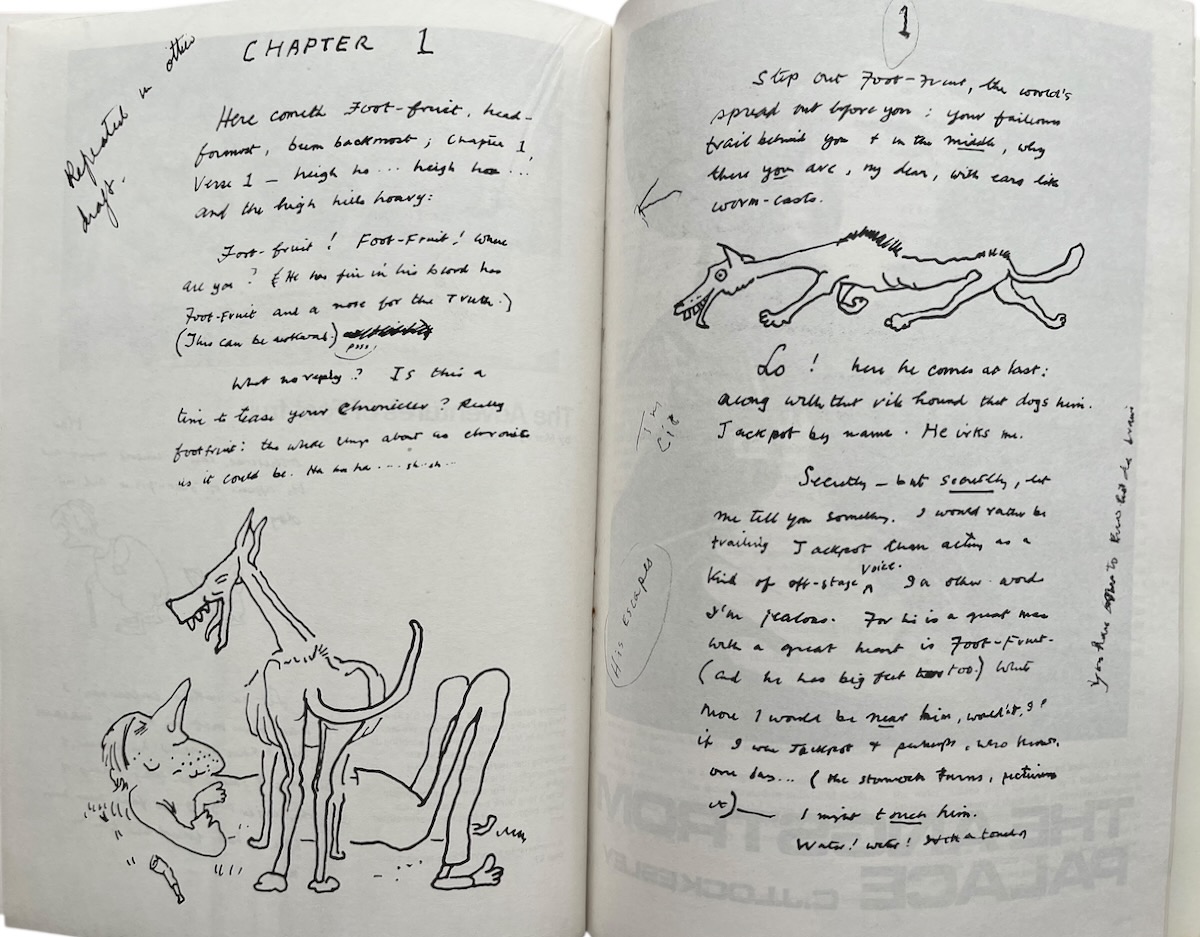 Repeated in other
draft.
CHAPTER 1
Here cometh Foot-fruit, head-
foremost, bum backmost; Chapter 1,
Verse 1 — heigh ho ... heigh ho ...
and the high hills hoary:
Foot-fruit! Foot-Fruit! Where
are you? (He has fire in his blood has
Foot-Fruit and a nose for the Truth.)
(This can be awkward.)
What no reply? Is this a
time to tease your chronicler? Really
footfruit: the whole thing about as chronic
as it could be. Ha ha ha .... sh. sh...
1
Step out Foot-Fruit, the world's
spread out before you; your
trail behind you & in the middle, why
there you are, my dear, with ears like
worm-casts.
Lo! here he comes at last:
along with that vile hound that dogs him.
Jackpot by name. He irks me.
Secretly — but secretly, let
me tell you something. I would rather be
trailing Jackpot than acting as a
kind of off-stage voice. In other words
I'm jealous. For he is a great man
with a great heart is Foot-Fruit.
(and he has big feet too.) What
more I would be near him, wouldn't I?
if I was Jackpot & perhaps, who knows,
one day... (the stomach turns, picturing
it) — I might touch him.
Water! water!
His escapes
you have to know
THE
PALACE C.J. LOCKESLEY